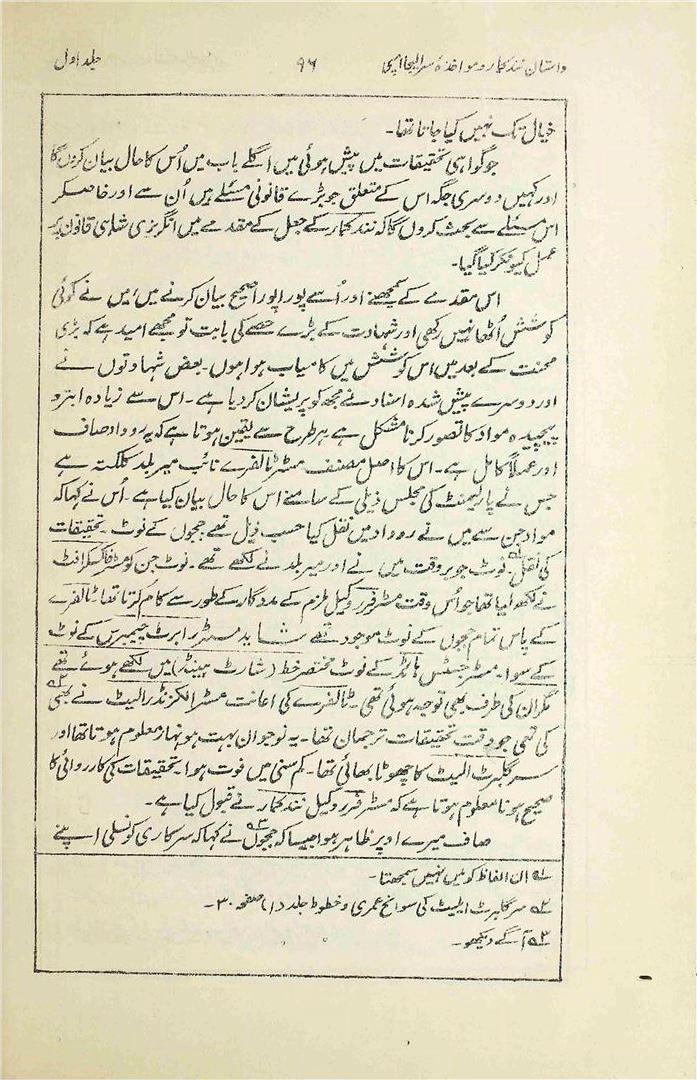 داستان نند کمار و مواخذہ سر الیجا امپی ۹۶ جلد اول
خیال تک نہیں کیا جاتا تھا۔
جو گواہی تحقیقات میں پیش ہوئی میں اگلے باب میں اُس کا حال بیان کروں گا
اور کہیں دوسری جگہ اس کے متعلق جو بڑے قانونی مسئلے ہیں اُن سے اور خاصکر
اس مسئلے سے بحث کروں گا کہ نند کمار کے جعل کے مقدمے میں انگریزی شاہی قانون پر
عمل کیونکر کیا گیا۔
اس مقدمے کے سمجھنے اور اُسے پورا پورا صحیح بیان کرنے میں، میں نے کوئی
کوشش اُٹھا نہیں رکھی اور شہادت کے بڑے حصے کی بابت تو مجھے امید ہے کہ بڑی
محنت کے بعد میں اس کوشش میں کامیاب ہوا ہوں۔ بعض شہادتوں نے
اور دوسرے پیش شدہ اسناد نے مجھ کو پریشان کر دیا ہے۔ اس سے زیادہ ابتر و
پیچیدہ مواد کا تصور کرنا مشکل ہے ہر طرح سے یقین ہوتا ہے کہ یہ روداد صاف
اور عملاً کامل ہے۔ اس کا اصل مصنف مسٹر ٹالفرے نائب میر بلد کلکتہ ہے
جس نے پارلیمنٹ کی مجلس ذیلی کے سامنے اس کا حال بیان کیا ہے۔ اُس نے کہا کہ
مواد جن سے میں نے روداد میں نقل کیا حسب ذیل تھے ججوں کے نوٹ۔ تحقیقات
کی نقل۔ نوٹ جو بر وقت میں نے اور میر بلد نے لکھے تھے۔ نوٹ جن کو مسٹر فاکسکرافٹ
نے لکھوا لیا تھا جو اُس وقت مسٹر فرر وکیل ملزم کے مددگار کے طور سے کام کرتا تھا ٹالفرے
کے پاس تمام ججوں کے نوٹ موجود تھے شاید مسٹر رابرٹ چیمبرس کے نوٹ
کے سوا۔ مسٹر جسٹس ہائڈ کے نوٹ مختصر خط (شارٹ ہینڈ) میں لکھے ہوئے تھے
مگر ان کی طرف بھی توجہ ہوئی تھی۔ ٹالفرے کی اعانت مسٹر الکزنڈر الیٹ نے بھی
کی تھی جو وقت تحقیقات ترجمان تھا۔ یہ نوجوان بہت ہونہار معلوم ہوتا تھا اور
سر گلبرٹ الیٹ کا چھوٹا بھائی تھا۔ کم سنی میں فوت ہوا۔ تحقیقات کی کارروائی کا
صحیح ہونا معلوم ہوتا ہے کہ مسٹر فرر وکیل نند کمار نے قبول کیا ہے۔
صاف میرے اوپر ظاہر ہوا جیسا کہ ججوں نے کہا کہ سرکاری کونسلی اپنے
۱ ان الفاظ کو میں نہیں سمجھتا۔
۲ سر گلبرٹ ایلیٹ کی سوانح عمری و خطوط جلد (۱) صفحہ ۳۰۔
۳ آگے دیکھو۔